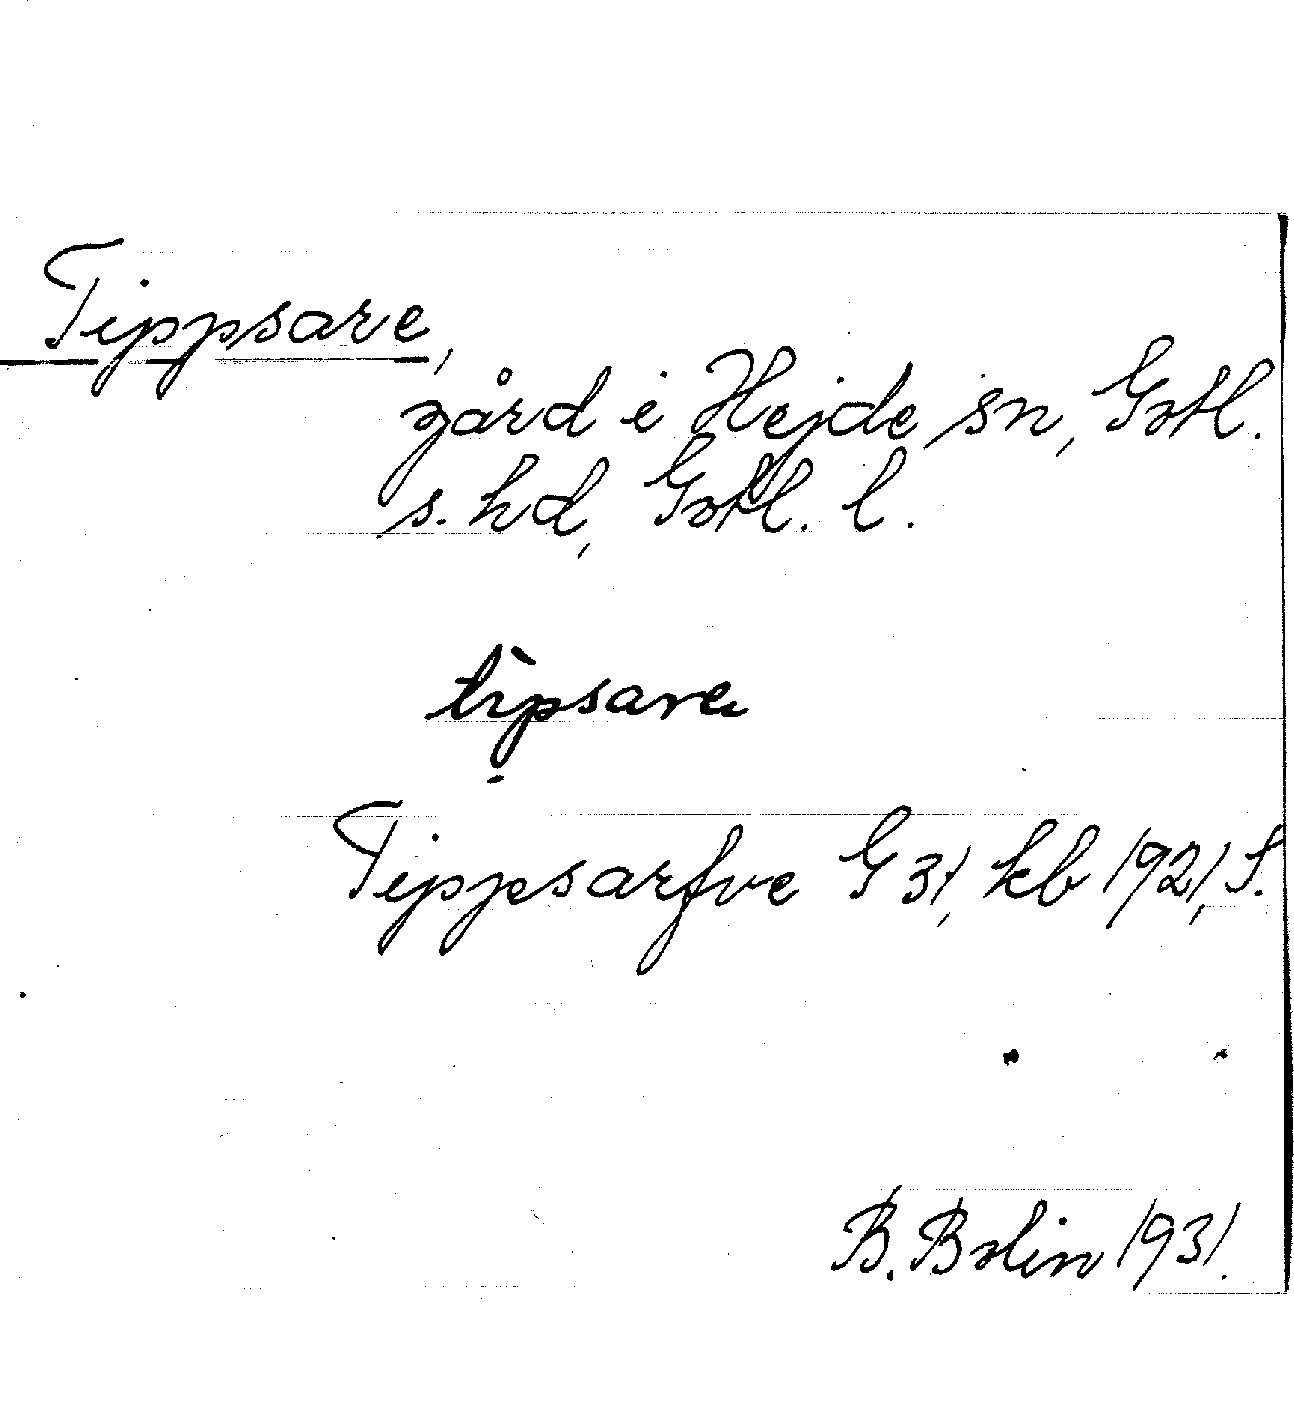 Tippsare,
gård i Hejde sn, Gotl.
s. hd, Gotl. l.
tìpsare
Tippsarfve G 31, kb 1921, S.
B. Bolin 1931.